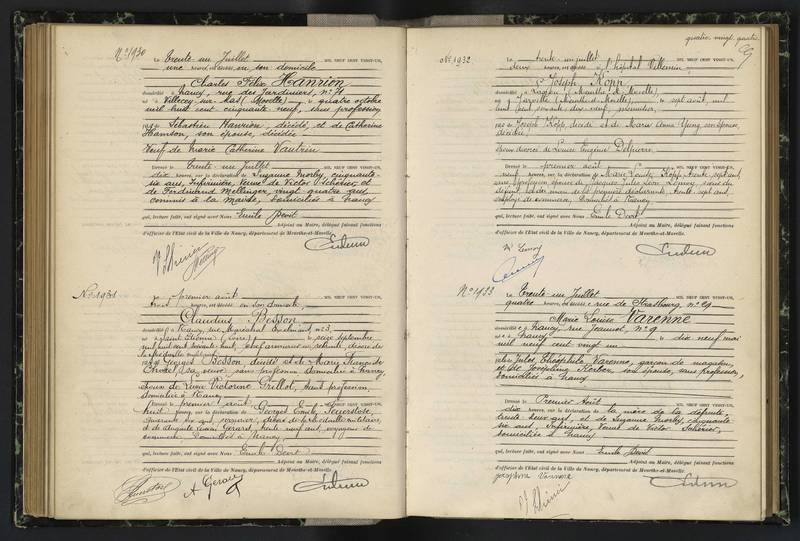 quatre-vingt-quatre
N° 1930
Le Trente-un Juillet MIL NEUF CENT VINGT-UN,
une heure, est décédé en son domicile
Charles Félix HANRION
domicilié à Nancy, rue des Jardiniers, n°
né à Villecey-sur-Mad (Moselle), le quatre octobre
mil huit cent cinquante neuf, sans profession
fils de Sébastien Hanrion, décédé, et de Catherine
son épouse, décédée
Veuf de Marie Catherine Vautrin
Dressé le trente un juillet MIL NEUF CENT VINGT-UN,
dix heures, sur la déclaration de Suzanne Morby, cinquante-
six ans, Infirmière, Veuve de Victor Schérier, et
de Ferdinand Mellinger, vingt quatre ans,
commis à la Mairie, domiciliés à Nancy
qui, lecture faite, ont signé avec Nous Emile Devit
Adjoint au Maire, délégué faisant fonctions
d'officier de l'Etat civil de la Ville de Nancy, département de Meurthe-et-Moselle.
N° 1931
Le premier août MIL NEUF CENT VINGT-UN,
heures, est décédé en son domicile
Claudius BESSON
domicilié à Nancy, rue Maréchal n° 3,
né à Saint Etienne (Loire) le seize septembre
mil huit cent soixante huit, chef armurier en retraite, décoré de
la médaille militaire
fils de Georges Besson décédé et de Marie Françoise
sa veuve, sans profession domiciliée à Nancy
époux de Lucie Victorine Grillot, sans profession,
domiciliée à Nancy
Dressé le premier août MIL NEUF CENT VINGT-UN,
huit heures, sur la déclaration de Georges Emile
quarante ans, décoré de la médaille militaire,
et de Gérard, trente neuf ans, voyageur de
commerce, domiciliés à Nancy
qui, lecture faite, ont signé avec Nous Emile Devit
Adjoint au Maire, délégué faisant fonctions
d'officier de l'Etat civil de la Ville de Nancy, département de Meurthe-et-Moselle.
A Gérard
N° 1932
Le trente-un juillet MIL NEUF CENT VINGT-UN,
deux heures, est décédé à l'hôpital Villemin
Joseph KOPP
domicilié à (Meurthe et Moselle),
né à (Meurthe-et-Moselle), le sept août, mil
huit cent soixante dix neuf,
fils de Joseph Kopp, décédé et de Marie Anna Yung, son épouse,
décédée
époux divorcé de Louise Eugénie Delpierre
Dressé le premier août MIL NEUF CENT VINGT-UN,
heures, sur la déclaration de Marie Louise Kopp, trente sept ans,
sans profession épouse de Jacques Jules Léon Lemoy, sœur du
défunt, et de trente sept ans
employé de commerce, domiciliés à Nancy
qui, lecture faite, ont signé avec Nous Emile Devit
Adjoint au Maire, délégué faisant fonctions
d'officier de l'Etat civil de la Ville de Nancy, département de Meurthe-et-Moselle.
N° 1933
Le Trente-un Juillet MIL NEUF CENT VINGT-UN,
quatre heures, est décédée rue de Strasbourg, n° 29
Marie Louise VARENNE
domiciliée à Nancy, rue Jeannot, n° 9
née à Nancy le dix neuf mai
mil neuf cent vingt un
fille de Jules Théophile Varenne, garçon de magasin,
et de Joséphine Kerber, son épouse, sans profession,
domiciliés à Nancy
Dressé le Premier Août MIL NEUF CENT VINGT-UN,
dix heures, sur la déclaration de la mère de la défunte,
trente deux ans, et de Suzanne Morby, cinquante
six ans, Infirmière, Veuve de Victor Schérier,
domiciliées à Nancy
qui, lecture faite, ont signé avec Nous Emile Devit
Adjoint au Maire, délégué faisant fonctions
d'officier de l'Etat civil de la Ville de Nancy, département de Meurthe-et-Moselle.
Joséphine Varenne